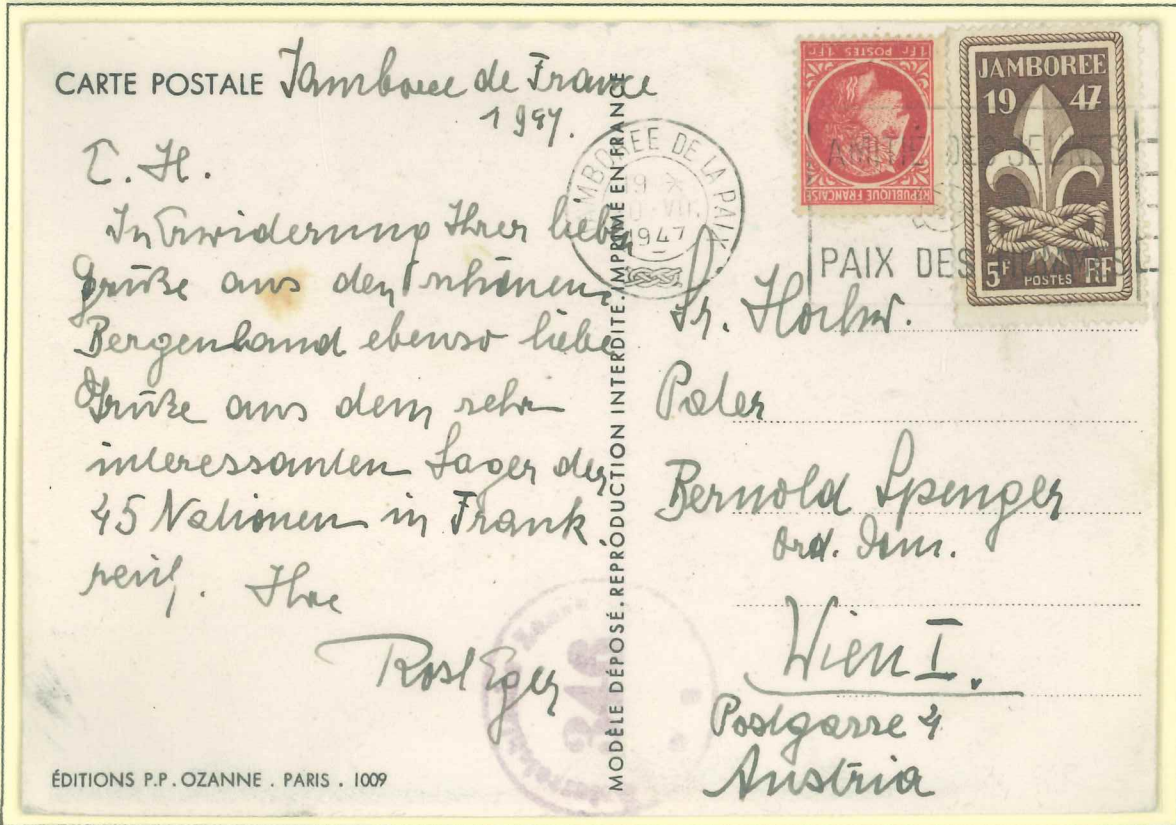 CARTE POSTALE Jamboree de France
1947.
L. H.
In Erwiderung Ihrer lieben
Grüße aus dem schönen
Bergenland ebenso liebe
Grüße aus dem sehr
interessanten Lager der
45 Nationen in Frank
reich. Ihre
Rosl Eger
ÉDITIONS P.P. OZANNE . PARIS . 1009
MODÈLE DÉPOSÉ. REPRODUCTION INTERDITE. IMPRIMÉ EN FRANCE
JAMBOREE DE LA PAIX
1947
1 Fr POSTES 1 Fr
RÉPUBLIQUE FRANÇAISE
JAMBOREE
1947
5F POSTES RF
AMITIÉ DES JEUNES
PAIX DES HOMMES
Sr. Hochw.
Pater
Bernold Spenger
ord. Dom.
Wien I.
Postgasse 4
Austria
346